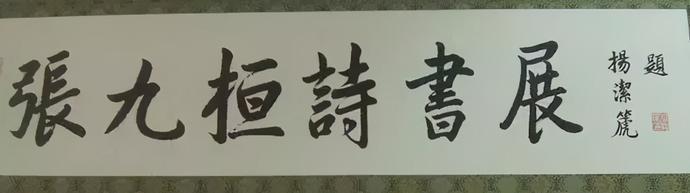 張九桓詩書展
揚潔篪
題